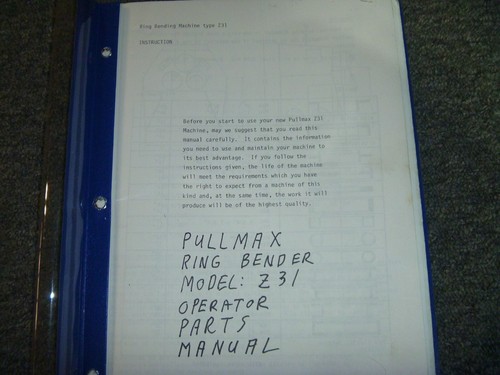 Ring Bending Machine type Z31
INSTRUCTION
Before you start to use your new Pullmax Z31
Machine, may we suggest that you read this
manual carefully. It contains the information
you need to use and maintain your machine to
its best advantage. If you follow the
instructions given, the life of the machine
will meet the requirements which you have
the right to expect from a machine of this
kind and, at the same time, the work it will
produce will be of the highest quality.
PULLMAX
RING BENDER
MODEL: Z31
OPERATOR
PARTS
MANUAL